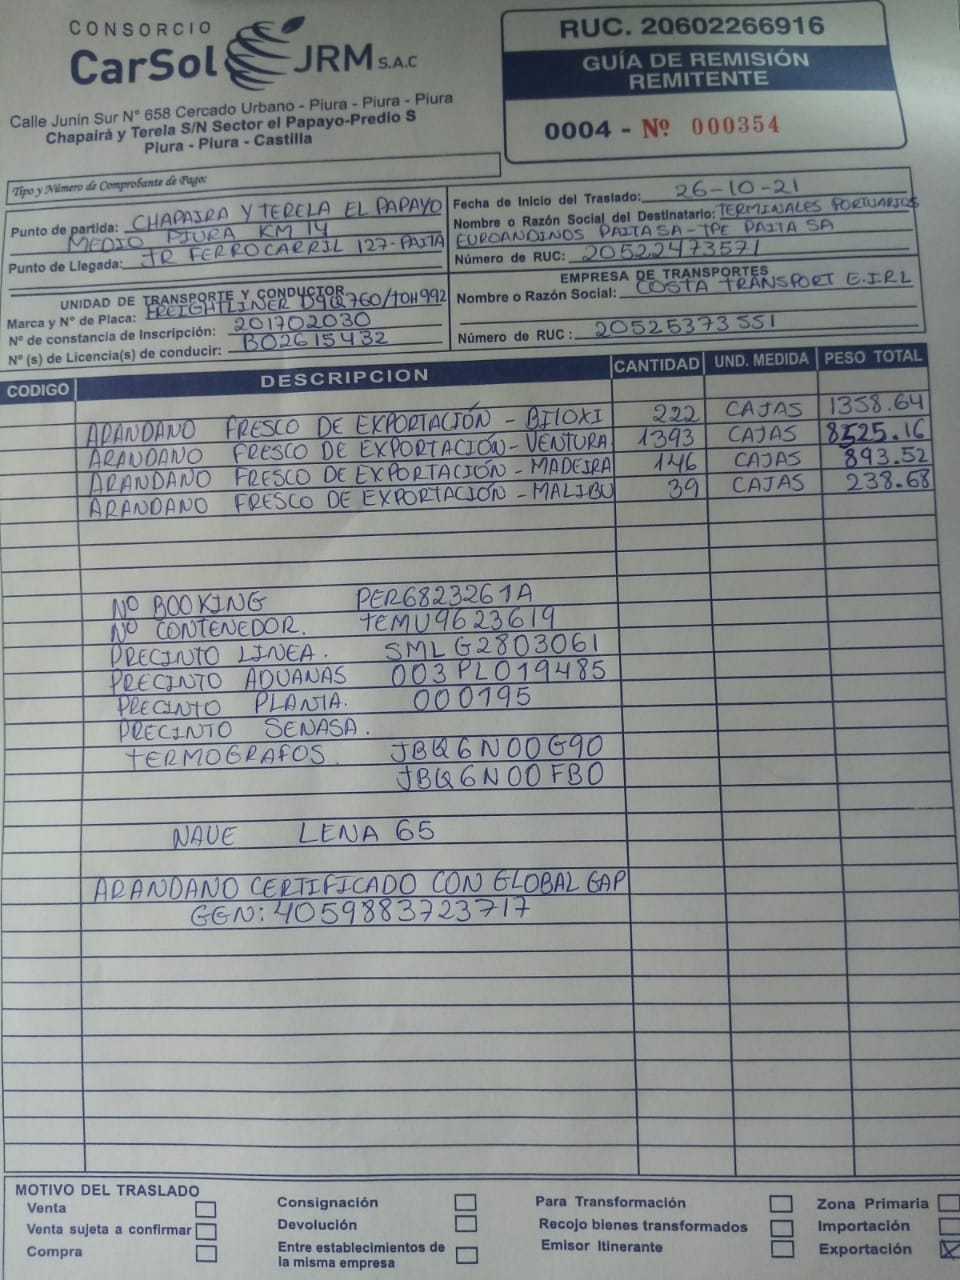 CONSORCIO
CarSol JRM S.A.C
Calle Junin Sur N° 658 Cercado Urbano - Piura - Piura - Piura
Chapairá y Terela S/N Sector el Papayo-Predio S
Piura - Piura - Castilla
RUC. 20602266916
GUÍA DE REMISIÓN
REMITENTE
0004 - Nº 000354
Tipo y Número de Comprobante de Pago:
Punto de partida: CHAPAIRA Y TERELA EL PAPAYO
MEDIO PIURA KM 14
Punto de Llegada: JR FERROCARRIL 127-PAITA
Fecha de Inicio del Traslado: 26-10-21
Nombre o Razón Social del Destinatario: TERMINALES PORTUARIOS
EUROANDINOS PAITA SA - TPE PAITA SA
Número de RUC: 20522473571
UNIDAD DE TRANSPORTE Y CONDUCTOR
Marca y Nº de Placa: FREIGHTLINER D9Q760/TOH992
Nº de constancia de Inscripción: 201702030
Nº (s) de Licencia(s) de conducir: B02615432
EMPRESA DE TRANSPORTES
Nombre o Razón Social: COSTA TRANSPORT E.I.R.L
Número de RUC: 20525373551
CODIGO DESCRIPCION CANTIDAD UND. MEDIDA PESO TOTAL
ARANDANO FRESCO DE EXPORTACIÓN - BILOXI 222 CAJAS 1358.64
ARANDANO FRESCO DE EXPORTACIÓN - VENTURA 1393 CAJAS 8525.16
ARANDANO FRESCO DE EXPORTACIÓN - MADEIRA 146 CAJAS 893.52
ARANDANO FRESCO DE EXPORTACIÓN - MALIBU 39 CAJAS 238.68
Nº BOOKING PER6823261A
Nº CONTENEDOR. TEMU9623619
PRECINTO LINEA. SMLG2803061
PRECINTO ADUANAS 003PL019485
PRECINTO PLANTA. 000195
PRECINTO SENASA.
TERMOGRAFOS. JBQ6N00G90
JBQ6N00FB0
NAVE LENA 65
ARANDANO CERTIFICADO CON GLOBAL GAP
GGN: 4059883723717
MOTIVO DEL TRASLADO
Venta
Venta sujeta a confirmar
Compra
Consignación
Devolución
Entre establecimientos de
la misma empresa
Para Transformación
Recojo bienes transformados
Emisor Itinerante
Zona Primaria
Importación
Exportación X